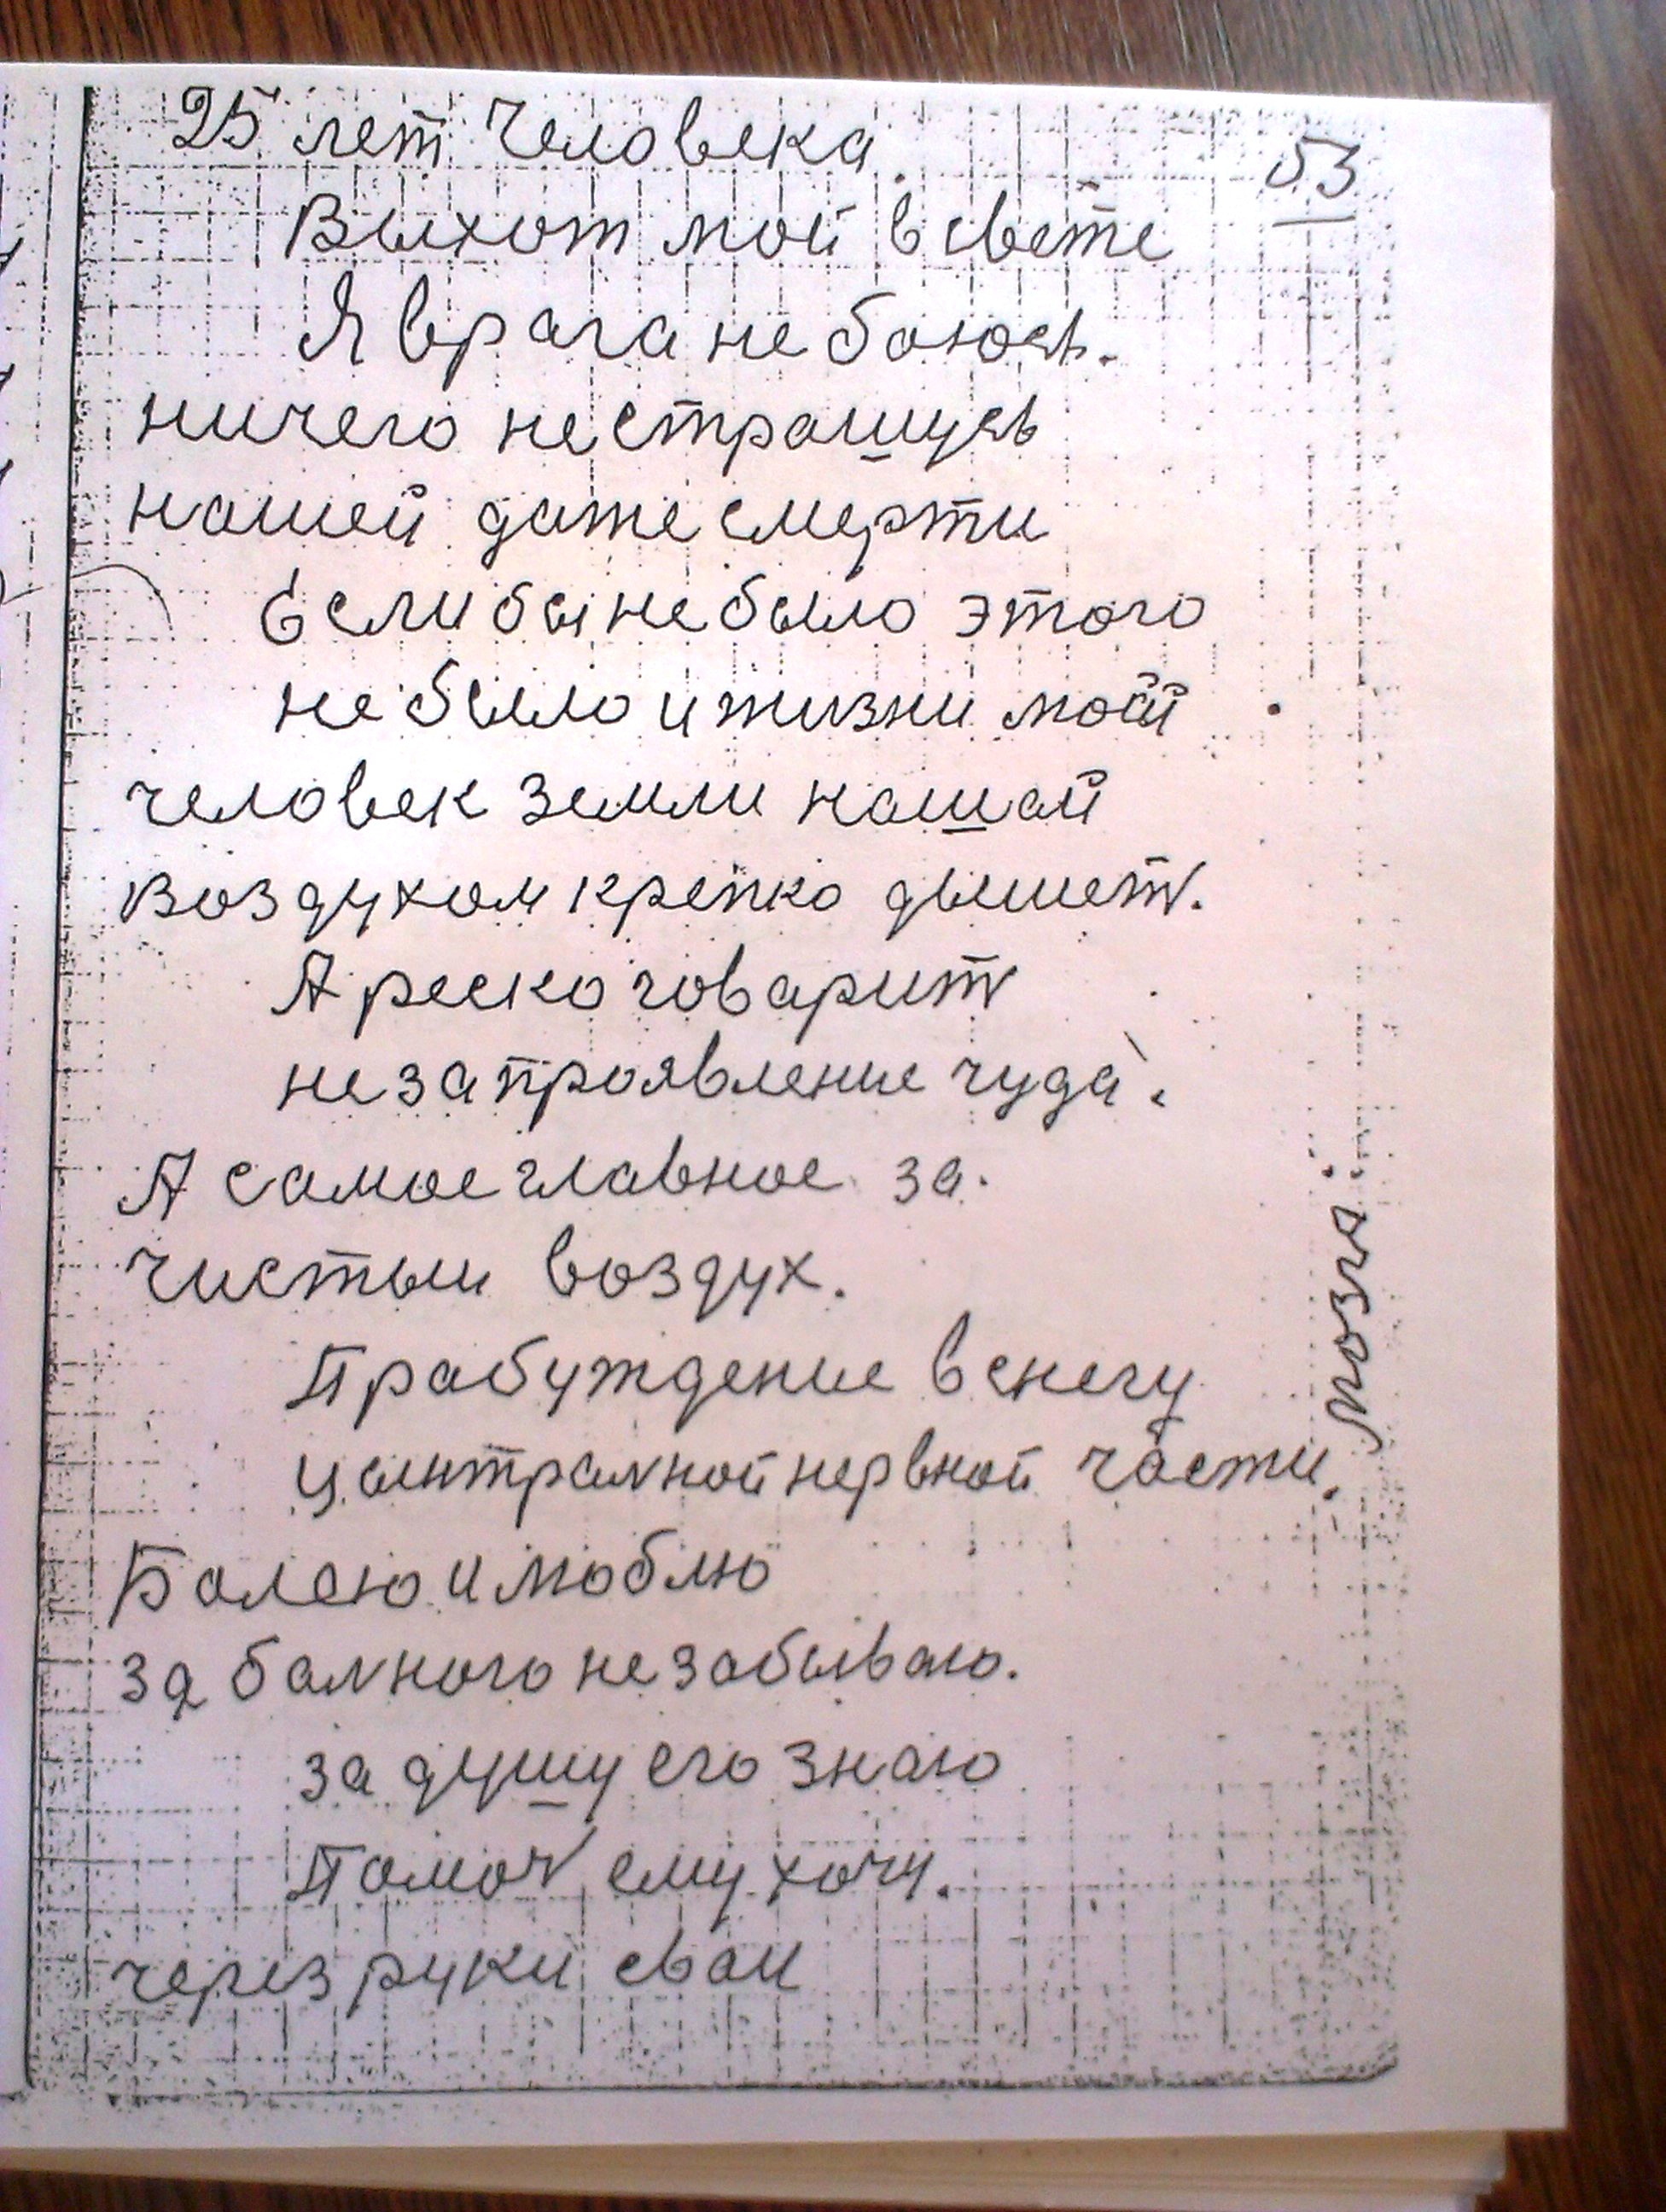 25 лет человека.
53
Выхот мой в свете
Я врага не боюсь.
ничего не страшусь
нашей даже смерти
Если бы не было этого
не было и жизни моей
человек земли нашай
воздухом крепко дышет.
А реско говарит
не за проявление чуда.
А самое главное за.
чистыи воздух.
Прабуждение в снегу
централной нервной части,
мозга.
Болею и люблю
за балного не забываю.
за душу его знаю
Памоч ему хочу.
через руки сваи